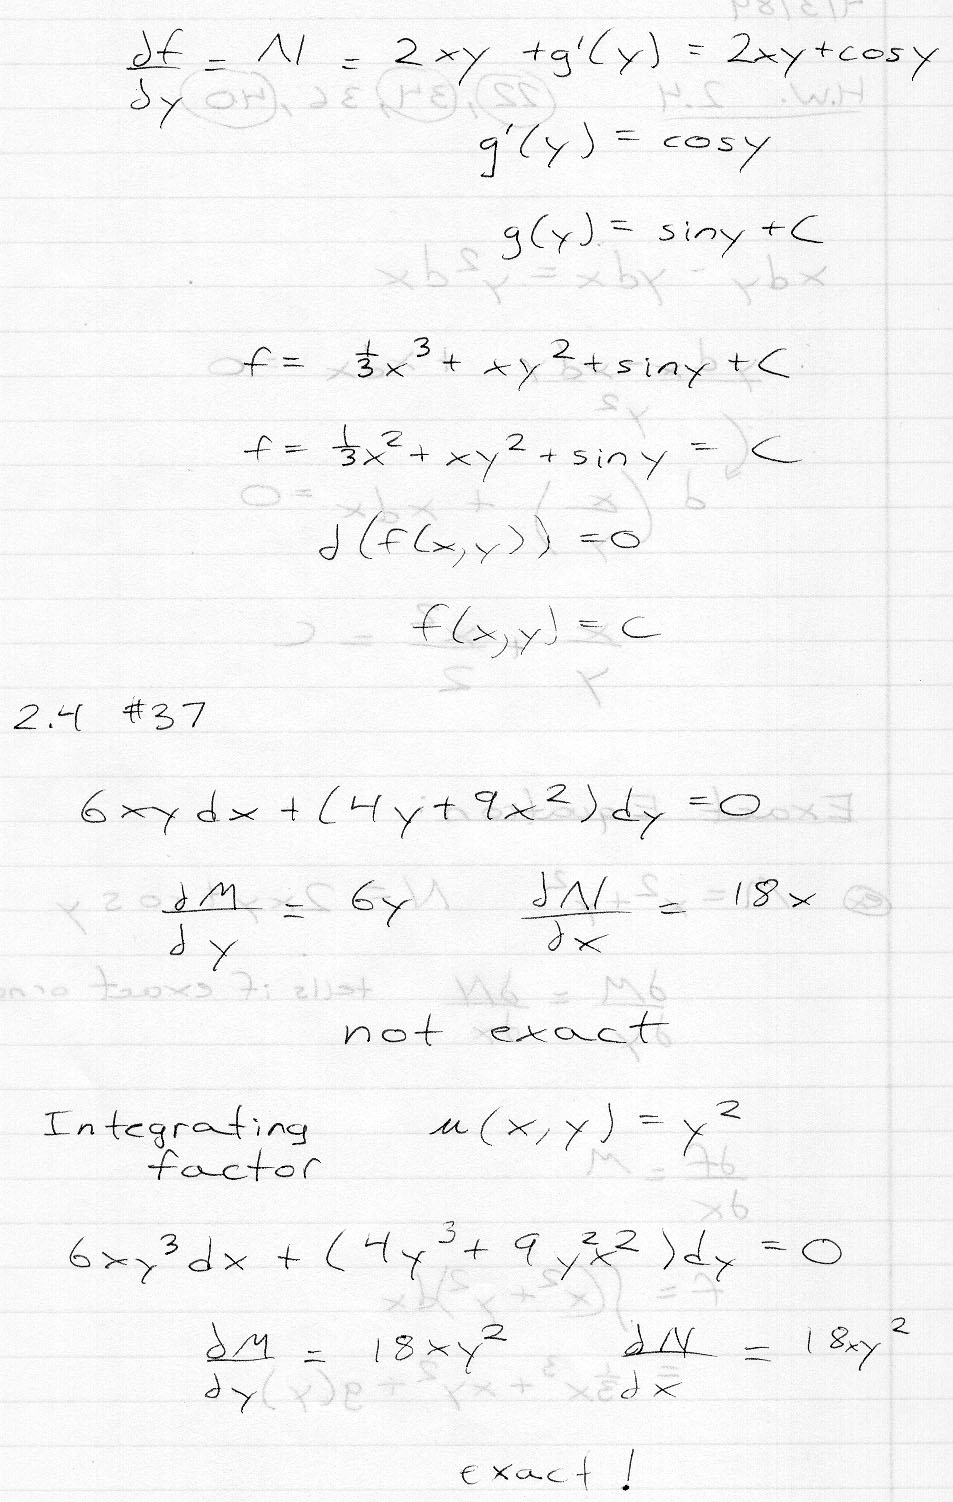 df/dy = N = 2xy + g'(y) = 2xy + cosy
g'(y) = cosy
g(y) = siny + C
f = 1/3 x^3 + xy^2 + siny + C
f = 1/3 x^2 + xy^2 + siny = C
d(f(x,y)) = 0
f(x,y) = C
2.4 #37
6xydx + (4y + 9x^2)dy = 0
dM/dy = 6y dN/dx = 18x
not exact
Integrating factor u(x,y) = y^2
6xy^3dx + (4y^3 + 9y^2x^2)dy = 0
dM/dy = 18xy^2 dN/dx = 18xy^2
exact!